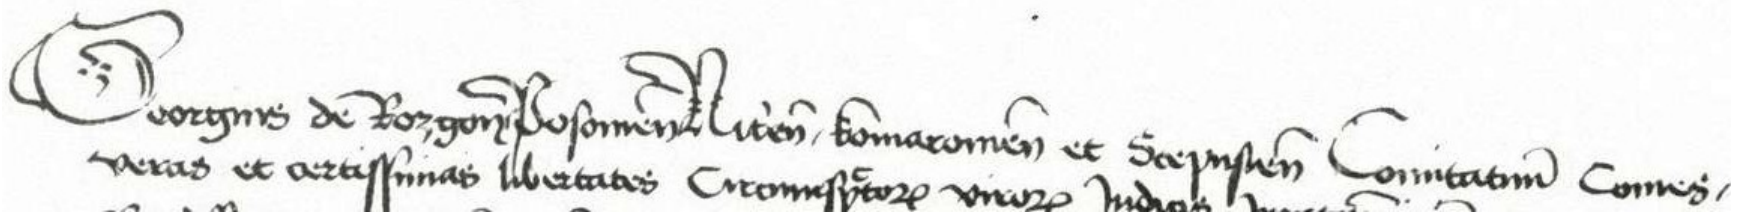 Georgius de Rozgon Posonien Nitrien komaromien et Scepusien Comitatuum Comes,
veras et certissimas libertates Circumspectorum virorum Judicis